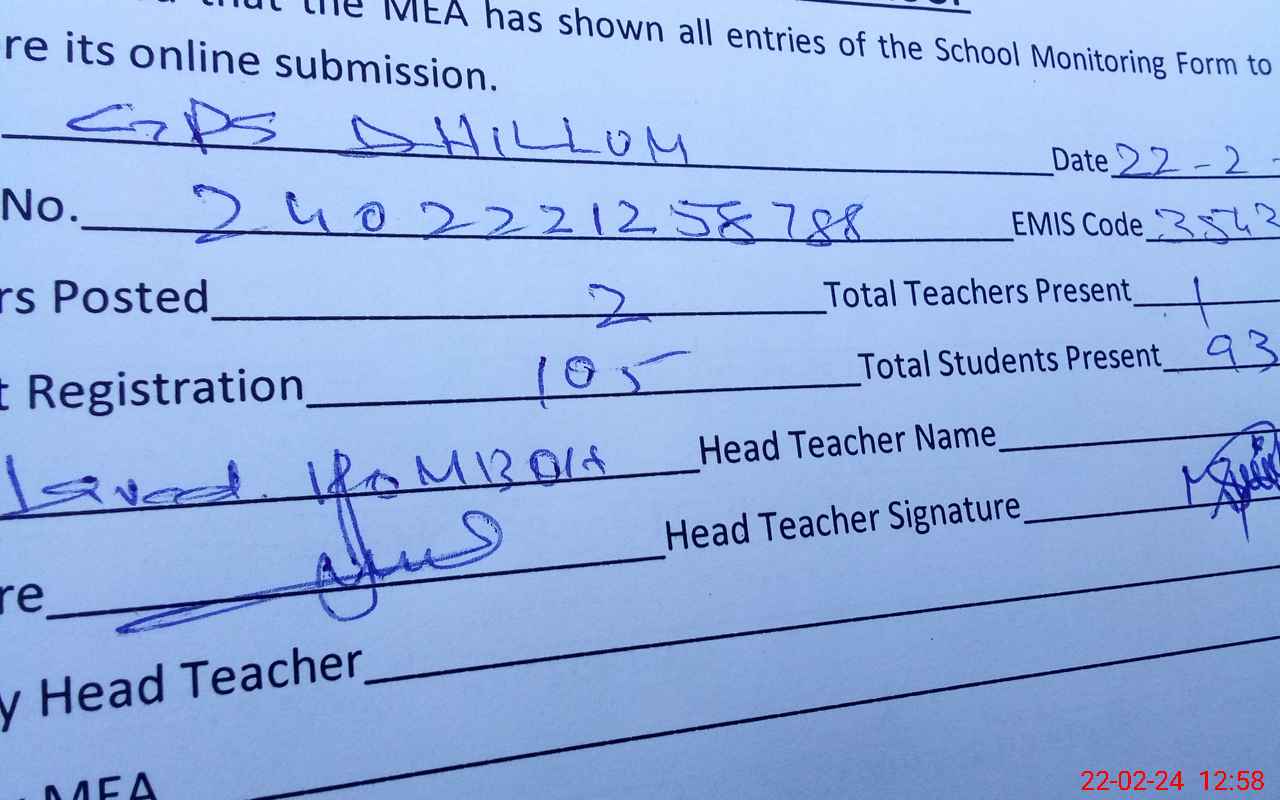 that the MEA has shown all entries of the School Monitoring Form to
re its online submission.
GPS DHILLON Date 22-2-
No. 2402221258788 EMIS Code 3543
rs Posted 2 Total Teachers Present 1
t Registration 105 Total Students Present 93
Head Teacher Name
re Head Teacher Signature
y Head Teacher
MEA
22-02-24 12:58